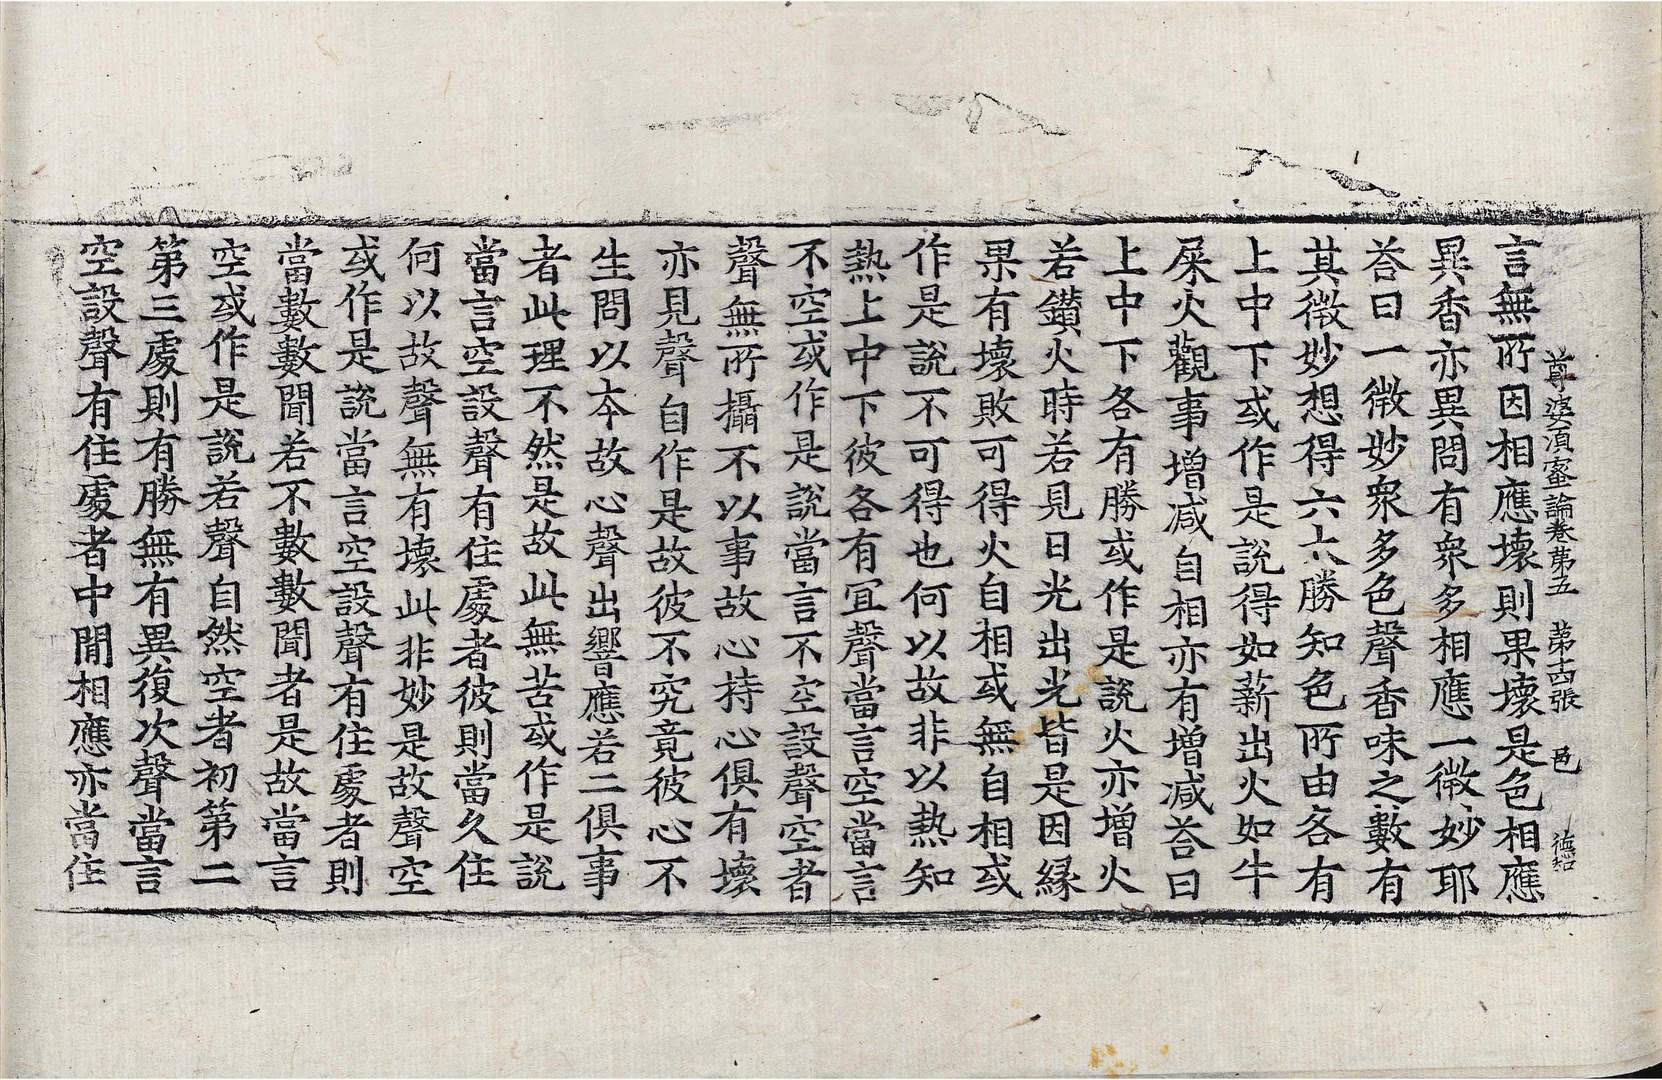 尊婆湏蜜論卷第五 第十四張 邑
言無所因相應壞則果壞是色相應
異香亦異問有衆多相應一微妙耶
荅曰一微妙衆多色聲香味之數有
其微妙想得六六勝知色所由各有
上中下或作是說得如薪出火如牛
屎火觀事增減自相亦有增減荅曰
上中下各有勝或作是說火亦增火
若鑚火時若見日光出光皆是因縁
果有壞敗可得火自相或無自相或
作是說不可得也何以故非以熱知
熱上中下彼各有冝聲當言空當言
不空或作是說當言不空設聲空者
聲無所攝不以事故心持心俱有壞
亦見聲自作是故彼不究竟彼心不
生問以本故心聲出響應若二俱事
者此理不然是故此無苦或作是說
當言空設聲有住處者彼則當久住
何以故聲無有壞此非妙是故聲空
或作是說當言空設聲有住處者則
當數數聞若不數數聞者是故當言
空或作是說若聲自然空者初第二
第三處則有勝無有異復次聲當言
空設聲有住處者中間相應亦當住